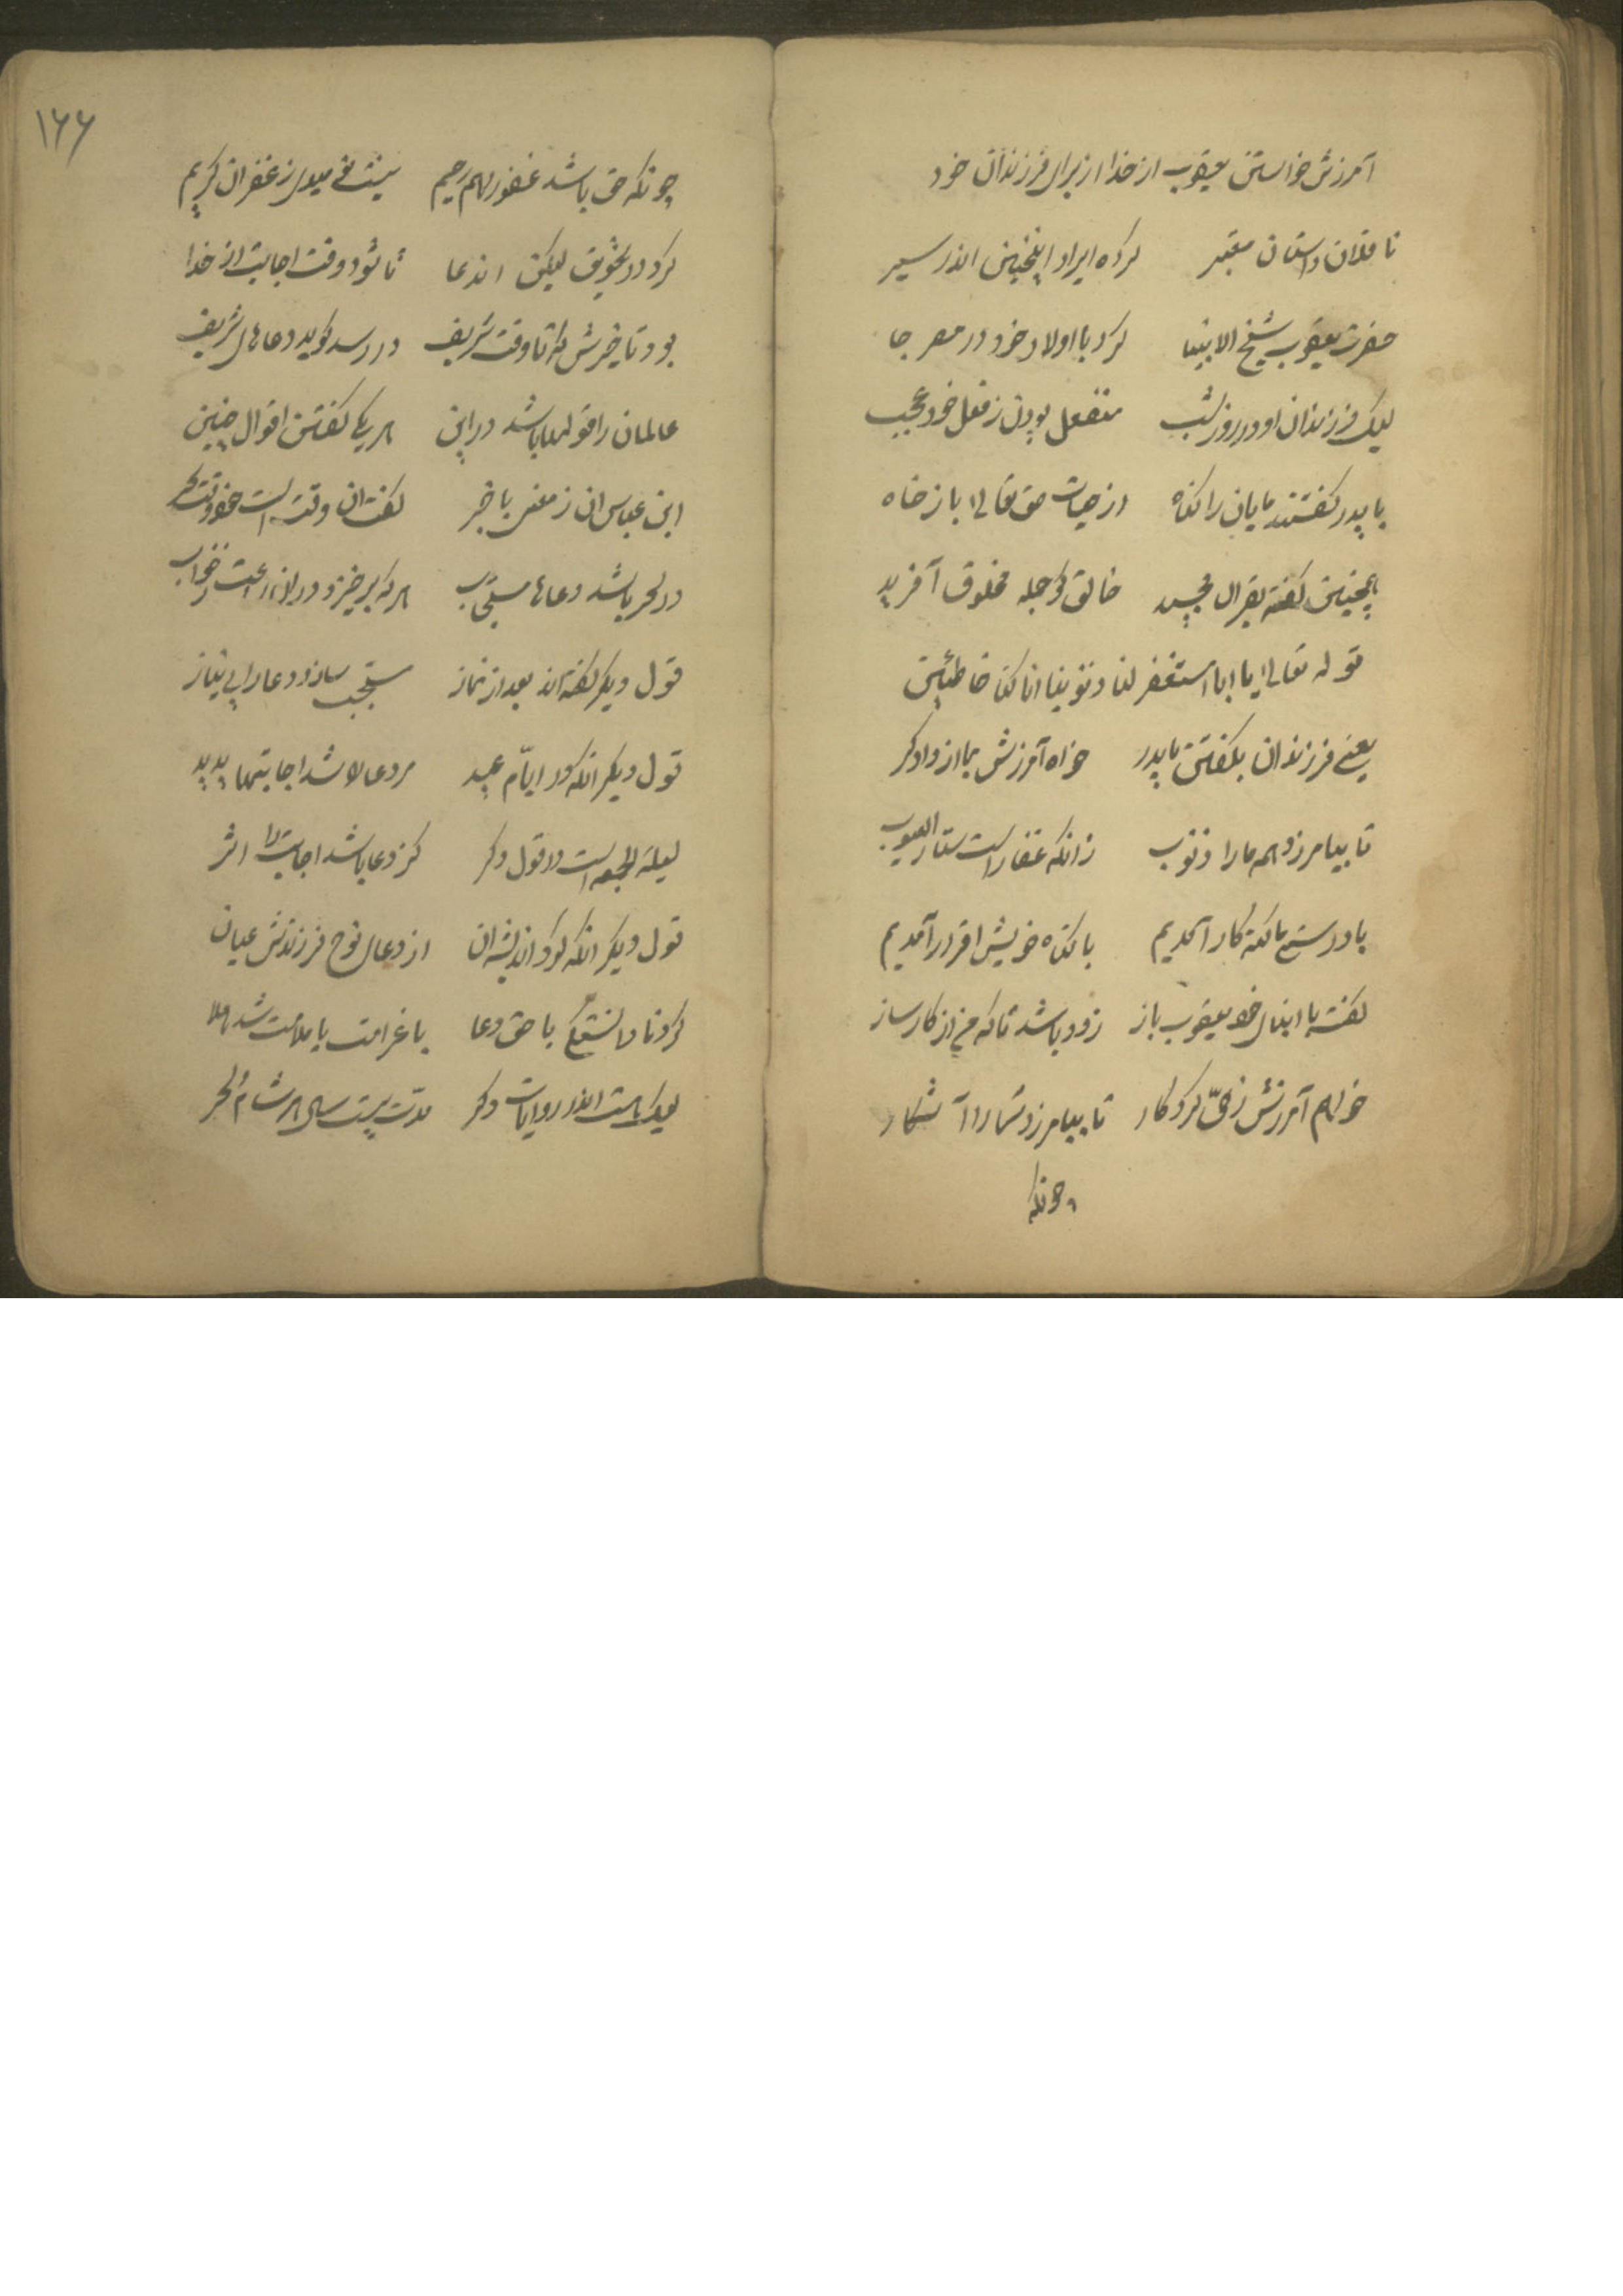 آمرزش خواستن یعقوب از خدا از برای فرزندان خود
ناقلان داستان معتبر کرده ایراد اینچنین اندر سیر
حضرت یعقوب شیخ الانبیا کرد با اولاد خود در مصر جا
لیک فرزندان او در روز شب منفعل بودن ز فعل خود عجب
با پدر گفتند مایان را گناه از جناب حق تعالی باز خاه
اینچنین گفته بقرآن مجید خالق کو جمله مخلوق آفرید
قوله تعالی یا ابانا استغفر لنا ذنوبنا انا کنا خاطئین
یعنی فرزندان بگفتن با پدر خواه آمرزش بما از دادگر
تا بیامرزد همه ما را ذنوب زانکه غفار است ستار العیوب
با درستی ما گنه کار آمدیم با گناه خویش اقرار آمدیم
گفت با ابنای خود یعقوب باز زود باشد تا که من از کارساز
خواهم آمرزش ز حی کردگار تا بیامرزد شما را آشکار
چونکه
۱۶۶
چونکه حق باشد غفور و هم رحیم نیست نومیدی ز غفران کریم
کرد در تعویق لیکن این دعا تا شود وقت اجابت از خدا
بود تاخیرش که تا وقت شریف در رسد گوید دعاهای شریف
عالمان را قولها باشد در این هر یکی گفتن اقوال چنین
ابن عباس آن ز معنی با خبر گفت آن وقت است خود وقت سحر
در سحر باشد دعاها مستجاب هر که برخیزد در آن ساعت ز خواب
قول دیگر گفته‌اند بعد از نماز مستجب سازد دعا را بی نیاز
قول دیگر آنکه در ایام عید مر دعا را شد اجابتها پدید
لیلة الجمعه است در قول دگر کز دعا باشد اجابت را اثر
قول دیگر آنکه کرد اندیشه آن از دعای نوح فرزندش عیان
کرد نادانستگی با حق دعا با غرامت با ملامت شد هلا
لیک هست اندر روایات دگر مدت بیست سال هر شام و سحر